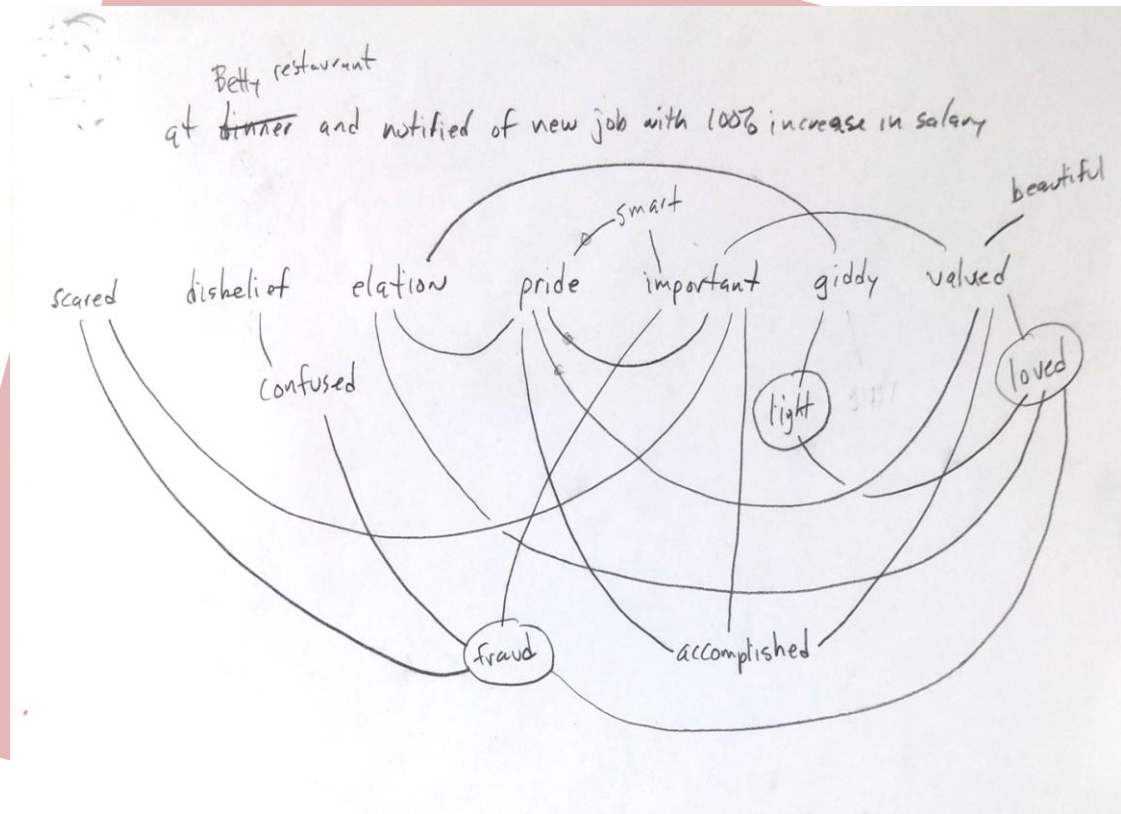 Betty restaurant
at dinner and notified of new job with 100% increase in salary
beautiful
smart
scared disbelief elation pride important giddy valued
confused light loved
fraud accomplished